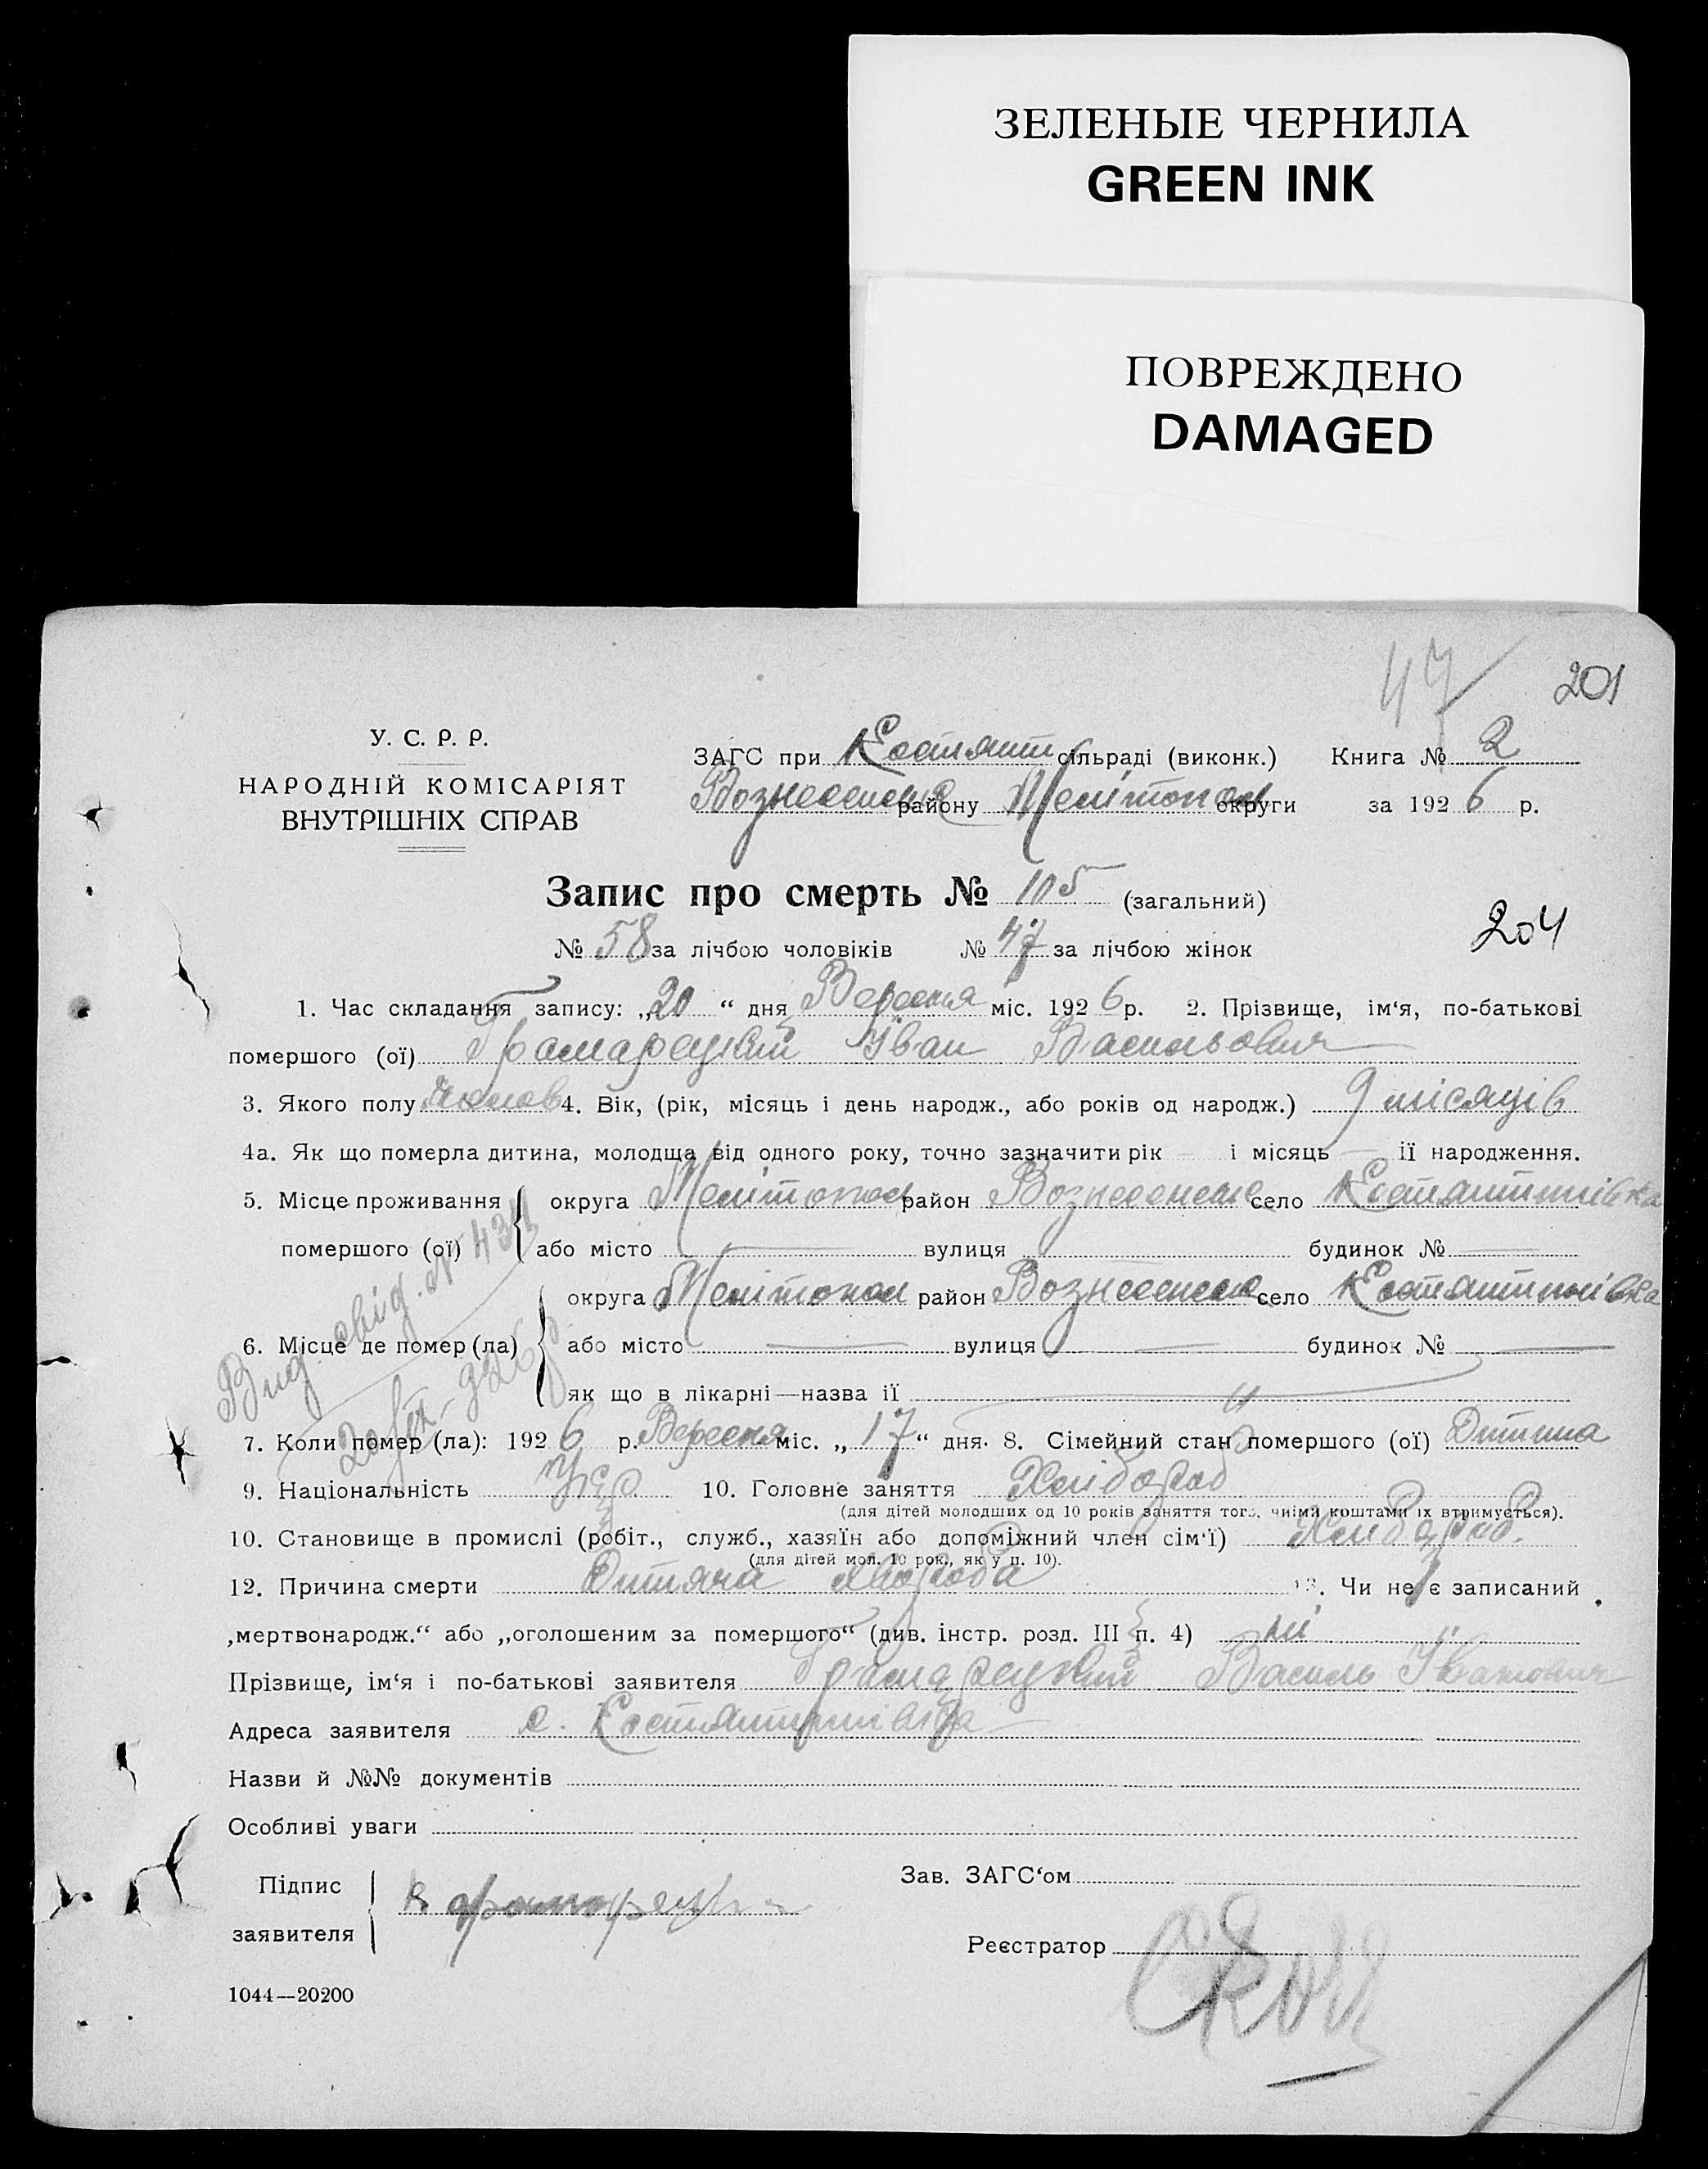 ЗЕЛЕНЫЕ ЧЕРНИЛА
GREEN INK
ПОВРЕЖДЕНО
DAMAGED
47 201
У. С. Р. Р.
НАРОДНІЙ КОМІСАРІЯТ
ВНУТРІШНІХ СПРАВ
ЗАГС при Костянт сільраді (виконк.) Книга № 2
Вознесенськ району Мелітопол округи за 1926 р.
Запис про смерть № 105 (загальний)
№ 58 за лічбою чоловіків № 47 за лічбою жінок
204
1. Час складання запису: „20“ дня Вересня міс. 1926 р. 2. Прізвище, ім‘я, по-батькові
помершого (ої) Грамарецкий Іван Васильович
3. Якого полу чолов 4. Вік, (рік, місяць і день народж., або років од народж.) 9 місяців
4а. Як що померла дитина, молодща від одного року, точно зазначити рік — і місяць — її народження.
5. Місце проживання округа Мелітопол район Вознесенськ село Костянтинівка
помершого (ої) або місто — вулиця будинок № —
Вид. свід. № 434
округа Мелітопол район Вознесенськ село Костянтинівка
6. Місце де помер (ла) або місто — вулиця — будинок № —
як що в лікарні—назва її —
7. Коли помер (ла): 1926 р. Вересня міс. „17“ дня. 8. Сімейний стан помершого (ої) Дитина
9. Національність Укр. 10. Головне заняття Хлібороб
(для дітей молодших од 10 років заняття того, чиїми коштами їх втримується).
10. Становище в промислі (робіт., служб., хазяїн або допоміжний член сім‘ї) Хлібороб.
(для дітей мол. 10 рок., як у п. 10).
12. Причина смерти Дитяча хвороба 13. Чи не є записаний
„мертвонародж.“ або „оголошеним за помершого“ (див. інстр. розд. III п. 4) ні
Прізвище, ім‘я і по-батькові заявителя Грамарецкий Василь Іванович
Адреса заявителя с. Костянтинівка
Назви й №№ документів
Особливі уваги
Підпис
заявителя
Зав. ЗАГС‘ом
Реєстратор
1044—20200